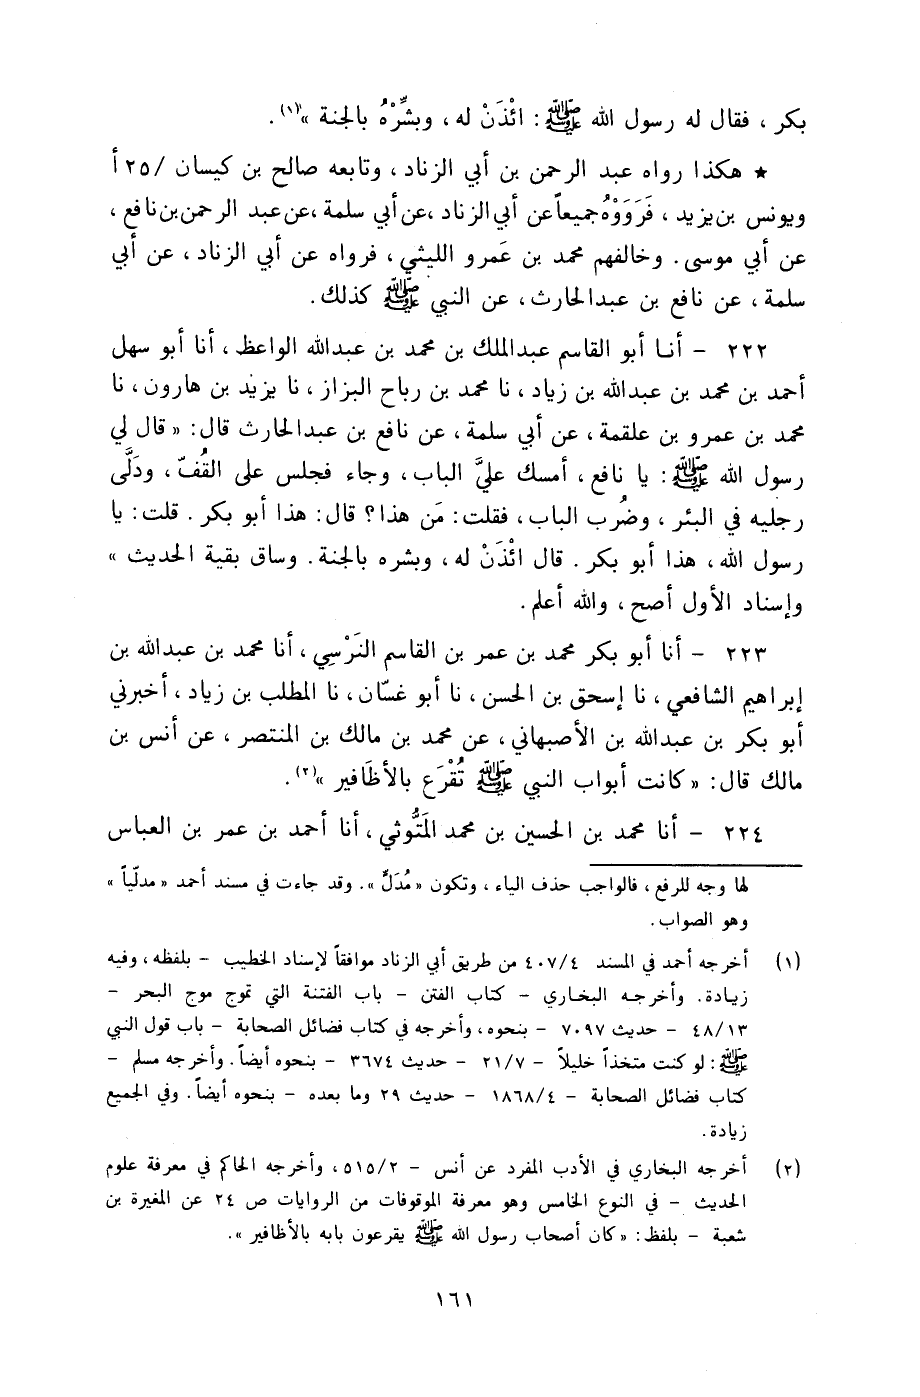 بكر ، فقال له رسول الله ﷺ : ائْذَنْ له ، وبشِّرْهُ بالجنة »(١) .
★ هكذا رواه عبد الرحمن بن أبي الزناد ، وتابعه صالح بن كيسان /٢٥ أ
ويونس بن يزيد ، فَرَوَوْهُ جميعاً عن أبي الزناد ، عن أبي سلمة ، عن عبد الرحمن بن نافع ،
عن أبي موسى . وخالفهم محمد بن عَمرو الليثي ، فرواه عن أبي الزناد ، عن أبي
سلمة ، عن نافع بن عبدالحارث ، عن النبي ﷺ كذلك .
٢٢٢ - أنا أبو القاسم عبدالملك بن محمد بن عبدالله الواعظ ، أنا أبو سهل
أحمد بن محمد بن عبدالله بن زياد ، نا محمد بن رباح البزاز ، نا يزيد بن هارون ، نا
محمد بن عمرو بن علقمة ، عن أبي سلمة ، عن نافع بن عبدالحارث قال : « قال لي
رسول الله ﷺ : يا نافع ، أمسك عليَّ الباب ، وجاء فجلس على القُفّ ، ودَلَّى
رجليه في البئر ، وضُرب الباب ، فقلت : مَن هذا ؟ قال : هذا أبو بكر . قلت : يا
رسول الله ، هذا أبو بكر . قال ائْذَنْ له ، وبشره بالجنة . وساق بقية الحديث »
وإسناد الأول أصح ، والله أعلم .
٢٢٣ - أنا أبو بكر محمد بن عمر بن القاسم النَرْسِي ، أنا محمد بن عبدالله بن
إبراهيم الشافعي ، نا إسحق بن الحسن ، نا أبو غسّان ، نا المطلب بن زياد ، أخبرني
أبو بكر بن عبدالله بن الأصبهاني ، عن محمد بن مالك بن المنتصر ، عن أنس بن
مالك قال : « كانت أبواب النبي ﷺ تُقْرَع بالأظَافير »(٢) .
٢٢٤ - أنا محمد بن الحسين بن محمد المَتُّوثي ، أنا أحمد بن عمر بن العباس
لها وجه للرفع ، فالواجب حذف الياء ، وتكون « مُدَلٍّ » . وقد جاءت في مسند أحمد « مدلّياً »
وهو الصواب .
(١) أخرجه أحمد في المسند ٤٠٧/٤ من طريق أبي الزناد موافقاً لإسناد الخطيب - بلفظه ، وفيه
زيادة . وأخرجه البخاري - كتاب الفتن - باب الفتنة التي تموج موج البحر -
٤٨/١٣ - حديث ٧٠٩٧ - بنحوه ، وأخرجه في كتاب فضائل الصحابة - باب قول النبي
ﷺ : لو كنت متخذاً خليلاً - ٢١/٧ - حديث ٣٦٧٤ - بنحوه أيضاً . وأخرجه مسلم -
كتاب فضائل الصحابة - ١٨٦٨/٤ - حديث ٢٩ وما بعده - بنحوه أيضاً . وفي الجميع
زيادة .
(٢) أخرجه البخاري في الأدب المفرد عن أنس - ٥١٥/٢ ، وأخرجه الحاكم في معرفة علوم
الحديث - في النوع الخامس وهو معرفة الموقوفات من الروايات ص ٢٤ عن المغيرة بن
شعبة - بلفظ : « كان أصحاب رسول الله ﷺ يقرعون بابه بالأظافير » .
١٦١